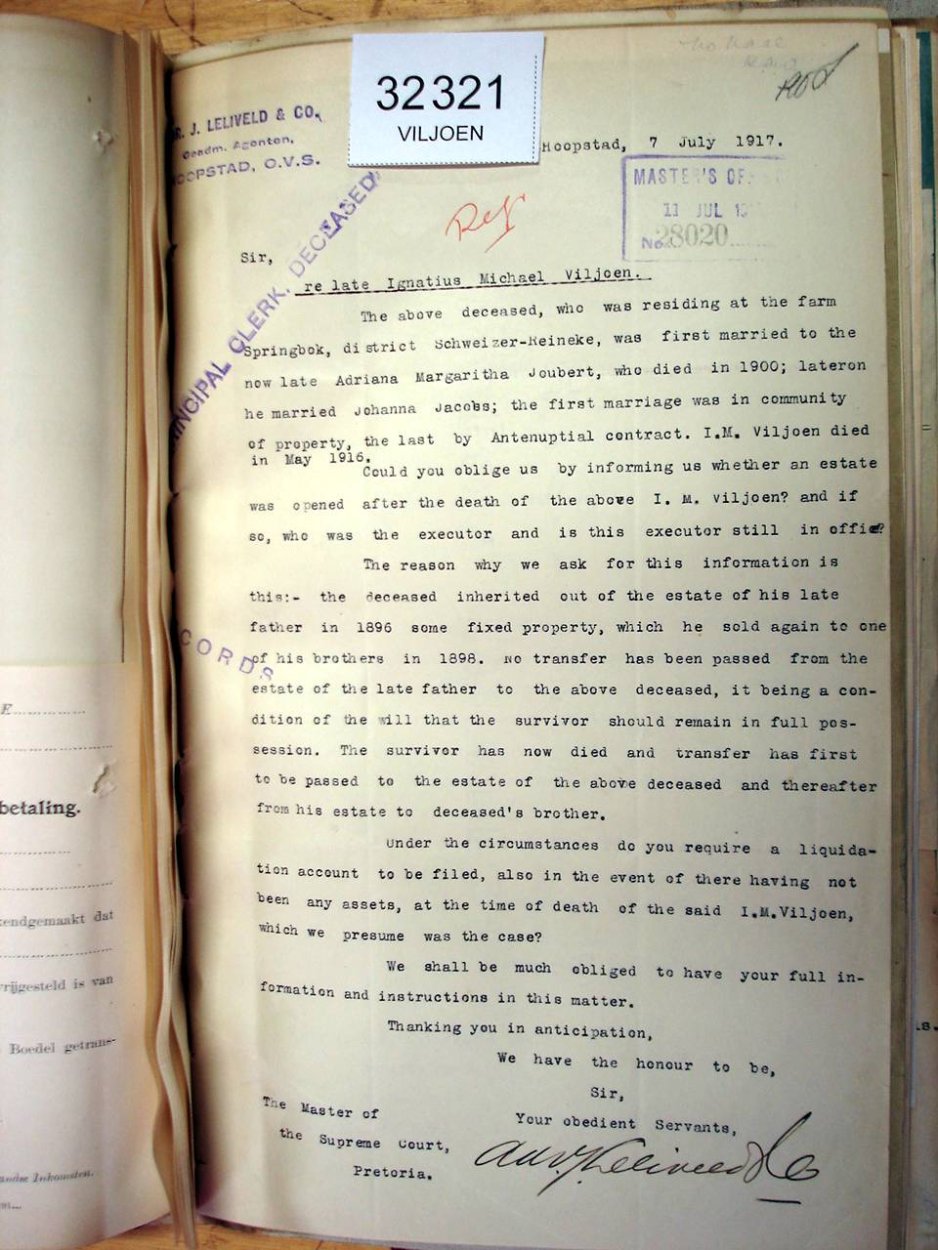 32321
VILJOEN
R. J. LELIVELD & CO.
Geadm. Agenten,
HOOPSTAD, O.V.S.
Hoopstad, 7 July 1917.
MASTER'S OF
11 JUL 19
No. 28020
Ref
PRINCIPAL CLERK, DECEASED
CORDS
Sir,
re late Ignatius Michael Viljoen.
The above deceased, who was residing at the farm
Springbok, district Schweizer-Reineke, was first married to the
now late Adriana Margaritha Joubert, who died in 1900; lateron
he married Johanna Jacobs; the first marriage was in community
of property, the last by Antenuptial contract. I.M. Viljoen died
in May 1916.
Could you oblige us by informing us whether an estate
was opened after the death of the above I. M. Viljoen? and if
so, who was the executor and is this executor still in office?
The reason why we ask for this information is
this:- the deceased inherited out of the estate of his late
father in 1896 some fixed property, which he sold again to one
of his brothers in 1898. No transfer has been passed from the
estate of the late father to the above deceased, it being a con-
dition of the will that the survivor should remain in full pos-
session. The survivor has now died and transfer has first
to be passed to the estate of the above deceased and thereafter
from his estate to deceased's brother.
Under the circumstances do you require a liquida-
tion account to be filed, also in the event of there having not
been any assets, at the time of death of the said I.M.Viljoen,
which we presume was the case?
We shall be much obliged to have your full in-
formation and instructions in this matter.
Thanking you in anticipation,
We have the honour to be,
Sir,
Your obedient Servants,
The Master of
the Supreme Court,
Pretoria.
E
betaling.
kendgemaakt dat
vrijgesteld is van
Boedel getrans-
Inkomsten.